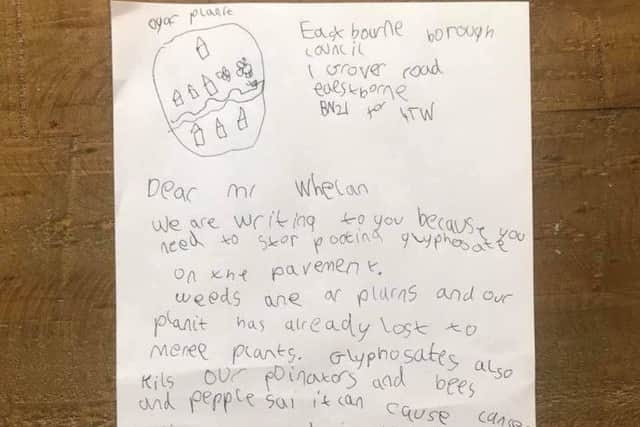 ouor planit
Eastbourne borough
council
1 Grover road
eaestborne
BN21 4TW
Dear mr Whelan
We are writing to you because you
need to stop pooting glyphosate
on the pavement.
weeds are ar plarns and our
planit has already lost to
menee plants. Glyphosates also
kils our poinators and bees
and pepple sai it can cause cancer